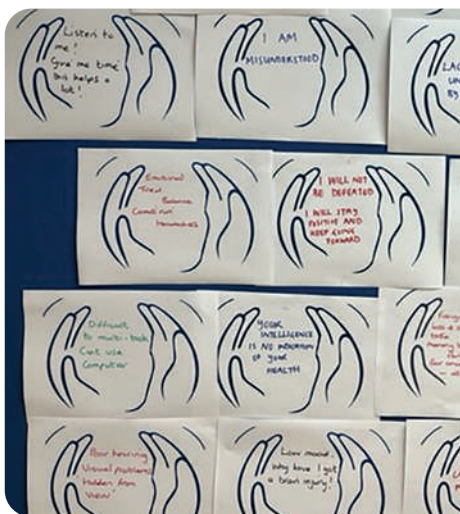 Listen to
me!
Give me time
this helps a
lot!
I AM
MISUNDERSTOOD
LAC
UN
BY
Emotional
Tired
Balance
Cannot run
Headaches
I WILL NOT
BE DEFEATED
I WILL STAY
POSITIVE AND
KEEP GOING
FORWARD
Difficult
to multi-task
Cant use
Computer
YOUR
INTELLIGENCE
IS NO INDICATION
OF YOUR
HEALTH
Poor hearing
Visual problems
'hidden from
view'
Low mood.
Why have I got
a brain injury!